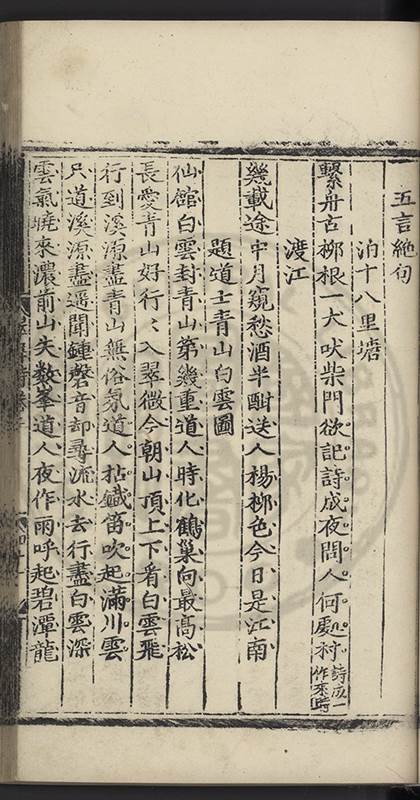 五言絶句
泊十八里塘
繫舟古柳根一犬吠柴門欲記詩成夜問人何處村詩成一作來時
渡江
幾載途中月窺愁酒半酣送人楊柳色今日是江南
題道士青山白雲圖
仙館白雲封青山第幾重道人時化鶴巢向最高松
長愛青山好行〻入翠微今朝山頂上下看白雲飛
行到溪源盡青山無俗氛道人拈鐵笛吹起滿川雲
只道溪源盡遥聞鍾磬音却尋流水去行盡白雲深
雲氣曉來濃前山失數峯道人夜作雨呼起碧潭龍